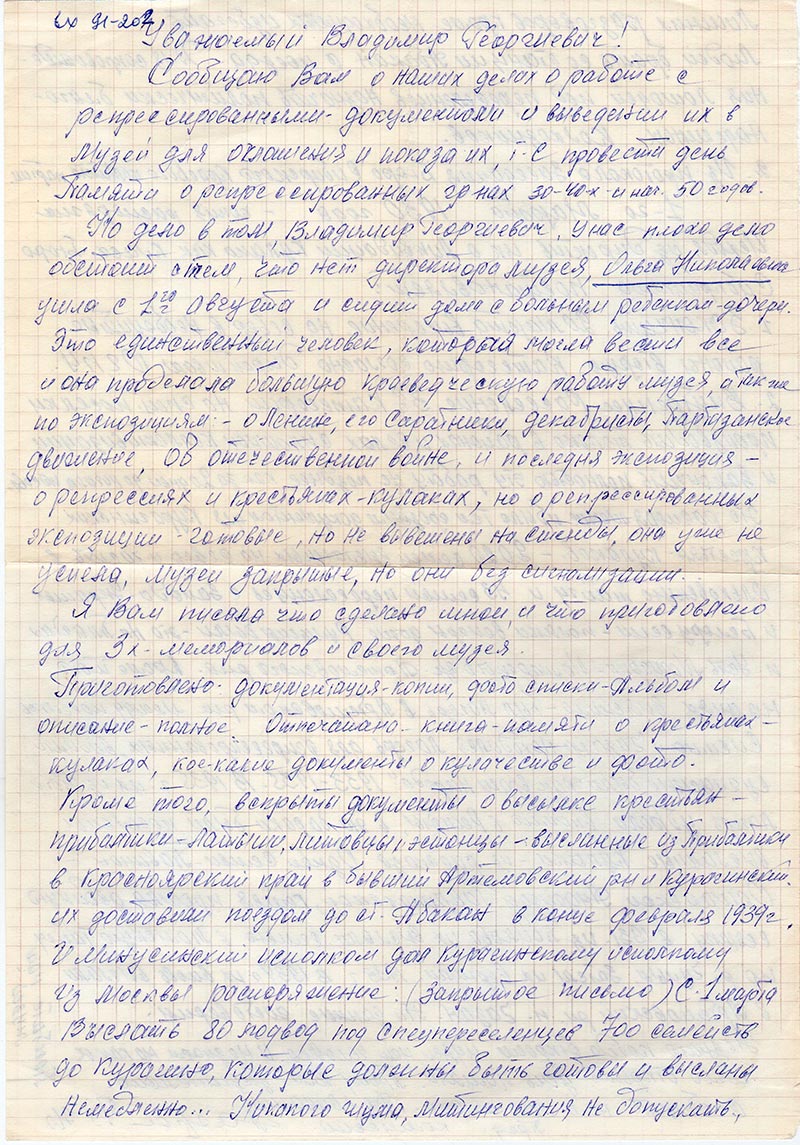 вх 91-202
Уважаемый Владимир Георгиевич!
Сообщаю Вам о наших делах о работе с
репрессированными - документами и выведении их в
Музей для оглашения и показа их, т-е провести день
Памяти о репрессированных гр-нах 30-40-х и нач. 50 годов.
Но дело в том, Владимир Георгиевич, у нас плохо дело
обстоит с тем, что нет директора музея, Ольга Николаевна
ушла с 1го августа и сидит дома с больным ребенком-дочери.
Это единственный человек, который могла вести все
и она проделала большую краеведческую работу музея, а так же
по экспозициям: - о Ленине, его Саратники, декабристы, Партизанское
движение, Об отечественной войне, и последня экспозиция -
о репрессиях и крестьянах-кулаках, но о репрессированных
экспозиции - готовые, но не вывешены на стенды, она уже не
успела, музеи закрытые, но они без сигнализации..
Я Вам писала что сделано мной, и что приготовлено
для 3х - мемориалов и своего музея.
Приготовлено - документация-копии, фото списки-Альбом и
описание - полное. Отпечатана - книга-памяти о крестьянах-
кулаках, кое-какие документы о кулачестве и фото.
Кроме того, вскрыты документы о высылке крестьян -
прибалтики - Латыши, литовцы, эстонцы - высланные из Прибалтики
в Красноярский край в бывший Артемовский р-н и Курагинский.
их доставили поездом до ст. Абакан в конце февраля 1939 г.
И Минусинский исполком дал Курагинскому исполкому
из Москвы распоряжение: (Закрытое письмо) С 1 марта
Выслать 80 подвод под спецпереселенцев 700 семейств
до Курагино, которые должны быть готовы и высланы
немедленно... Никакого шума, митингования не допускать.,